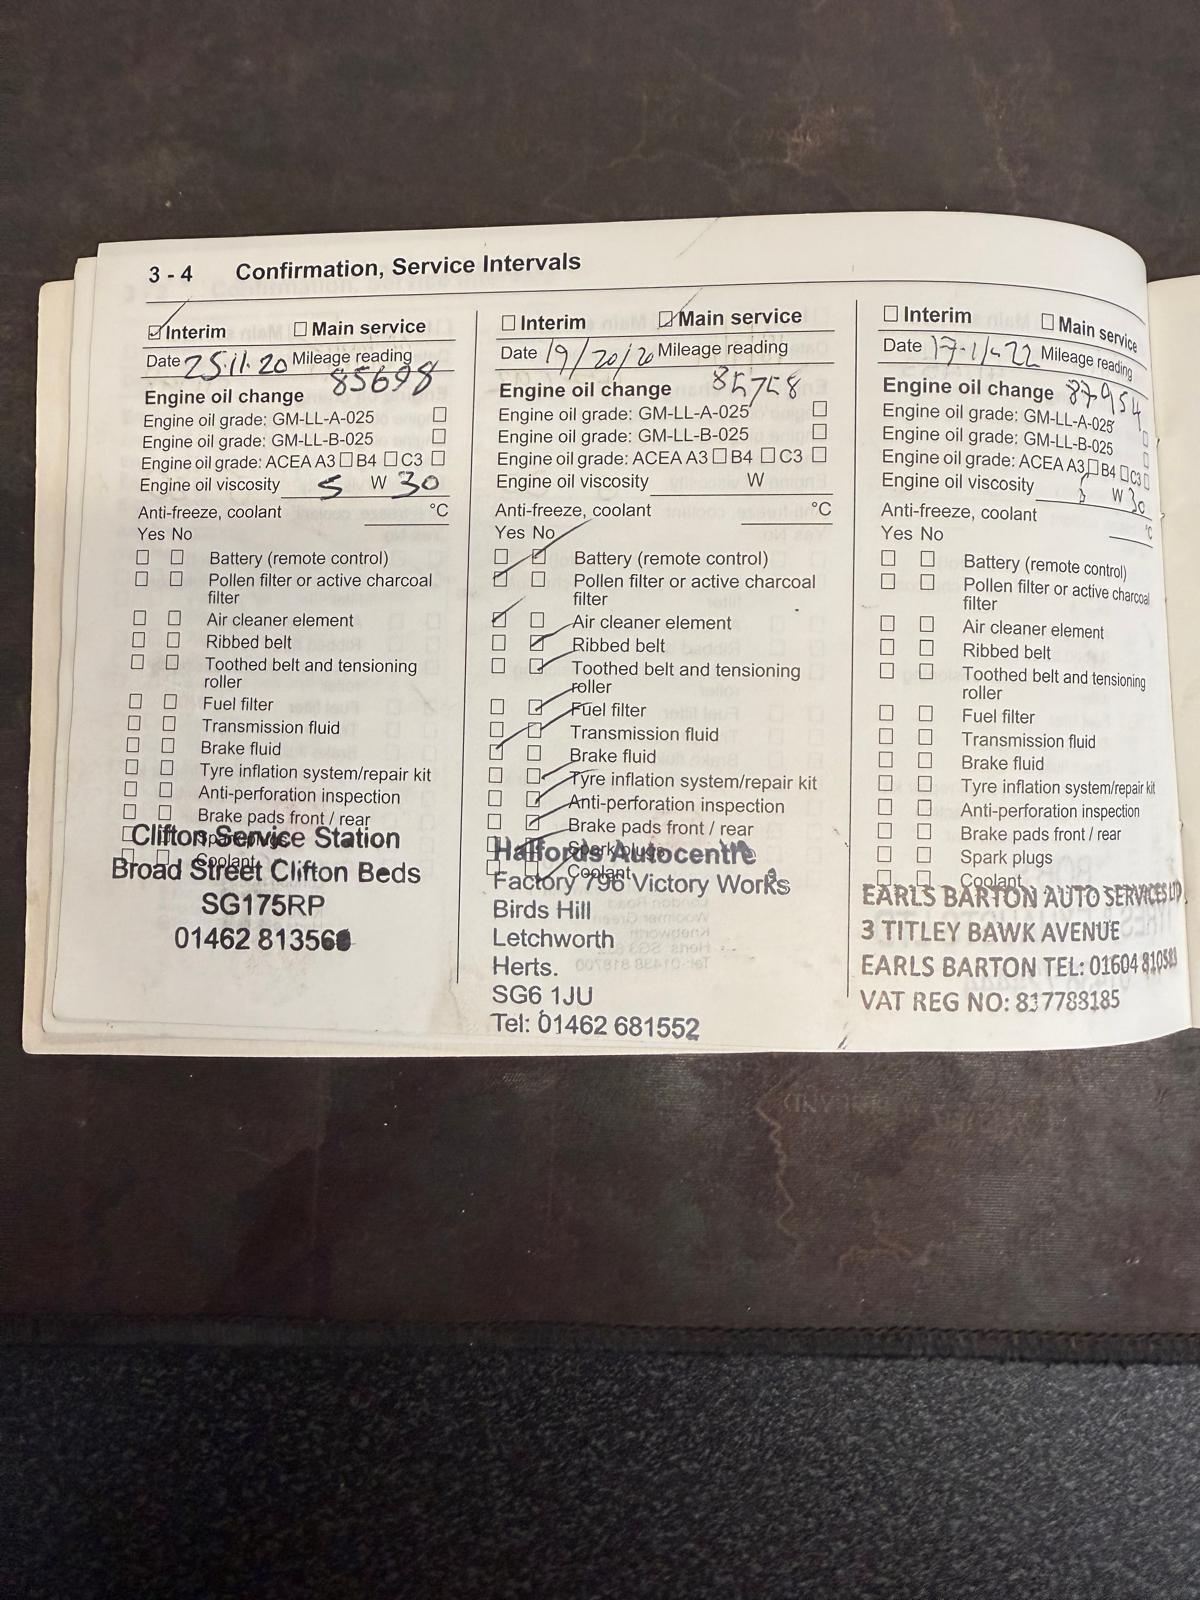 3 - 4 Confirmation, Service Intervals
Interim Main service
Date 25.11.20 Mileage reading
85698
Engine oil change
Engine oil grade: GM-LL-A-025
Engine oil grade: GM-LL-B-025
Engine oil grade: ACEA A3 B4 C3
Engine oil viscosity 5 W 30
Anti-freeze, coolant °C
Yes No
Battery (remote control)
Pollen filter or active charcoal
filter
Air cleaner element
Ribbed belt
Toothed belt and tensioning
roller
Fuel filter
Transmission fluid
Brake fluid
Tyre inflation system/repair kit
Anti-perforation inspection
Brake pads front / rear
Spark plugs
Coolant
Clifton Service Station
Broad Street Clifton Beds
SG175RP
01462 813560
Interim Main service
Date 19/20/20 Mileage reading
85758
Engine oil change
Engine oil grade: GM-LL-A-025
Engine oil grade: GM-LL-B-025
Engine oil grade: ACEA A3 B4 C3
Engine oil viscosity W
Anti-freeze, coolant °C
Yes No
Battery (remote control)
Pollen filter or active charcoal
filter
Air cleaner element
Ribbed belt
Toothed belt and tensioning
roller
Fuel filter
Transmission fluid
Brake fluid
Tyre inflation system/repair kit
Anti-perforation inspection
Brake pads front / rear
Spark plugs
Coolant
Halfords Autocentre
Factory 796 Victory Works
Birds Hill
Letchworth
Herts.
SG6 1JU
Tel: 01462 681552
Interim Main service
Date 17-1/-22 Mileage reading
Engine oil change 87954
Engine oil grade: GM-LL-A-025
Engine oil grade: GM-LL-B-025
Engine oil grade: ACEA A3 B4 C3
Engine oil viscosity 5 W 30
Anti-freeze, coolant °C
Yes No
Battery (remote control)
Pollen filter or active charcoal
filter
Air cleaner element
Ribbed belt
Toothed belt and tensioning
roller
Fuel filter
Transmission fluid
Brake fluid
Tyre inflation system/repair kit
Anti-perforation inspection
Brake pads front / rear
Spark plugs
Coolant
EARLS BARTON AUTO SERVICES LTD
3 TITLEY BAWK AVENUE
EARLS BARTON TEL: 01604 810583
VAT REG NO: 817788185